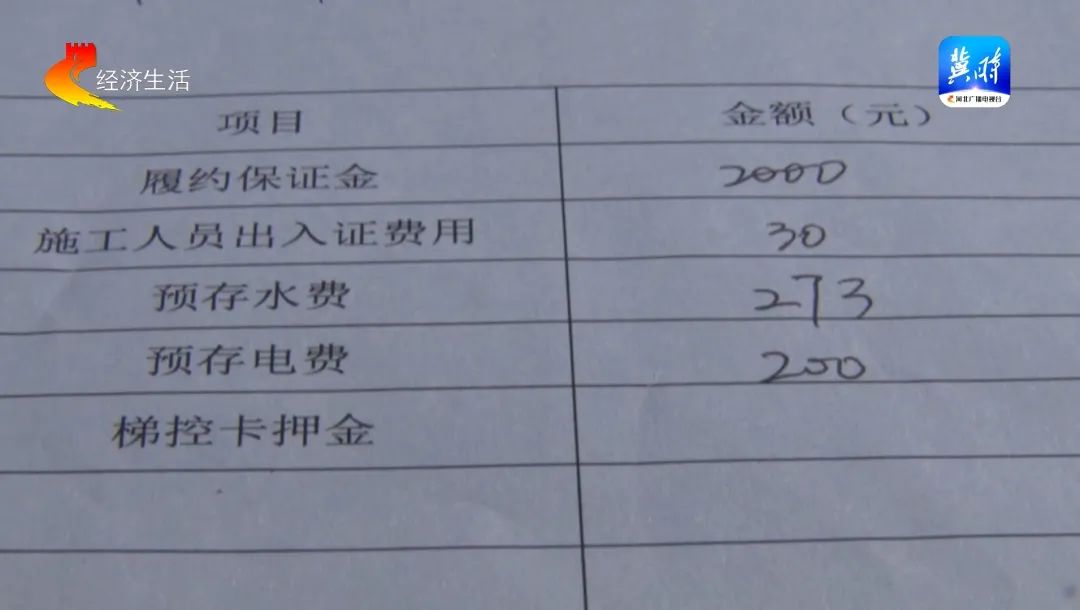 经济生活
冀时
河北广播电视台
项目 金额（元）
履约保证金 2000
施工人员出入证费用 30
预存水费 273
预存电费 200
梯控卡押金